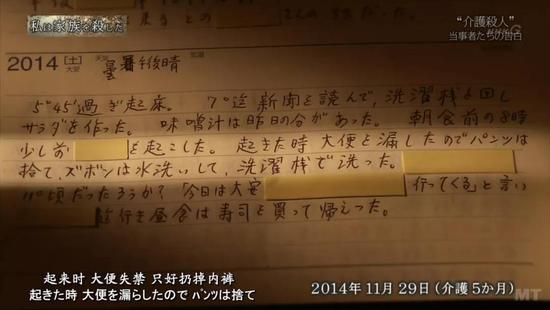 私は家族を殺した
“介護殺人”
当事者たちの告白
2014 [土] 大安 天気 曇暑午後晴 気温
5°45'過ぎ起床。 7°迄新聞を読んで、洗濯機を回し
サラダを作った。 味噌汁は昨日の分があった。 朝食前の8時
少し前 を起こした。 起きた時大便を漏したのでパンツは
捨て、ズボンは水洗いして、洗濯機で洗った。
頃だったろうか? 「今日は大 行ってくる」と言い
行き昼食は寿司を買って帰えった。
起来时 大便失禁 只好扔掉内裤
起きた時 大便を漏らしたので パンツは捨て
2014年11月29日(介護5か月)
MT